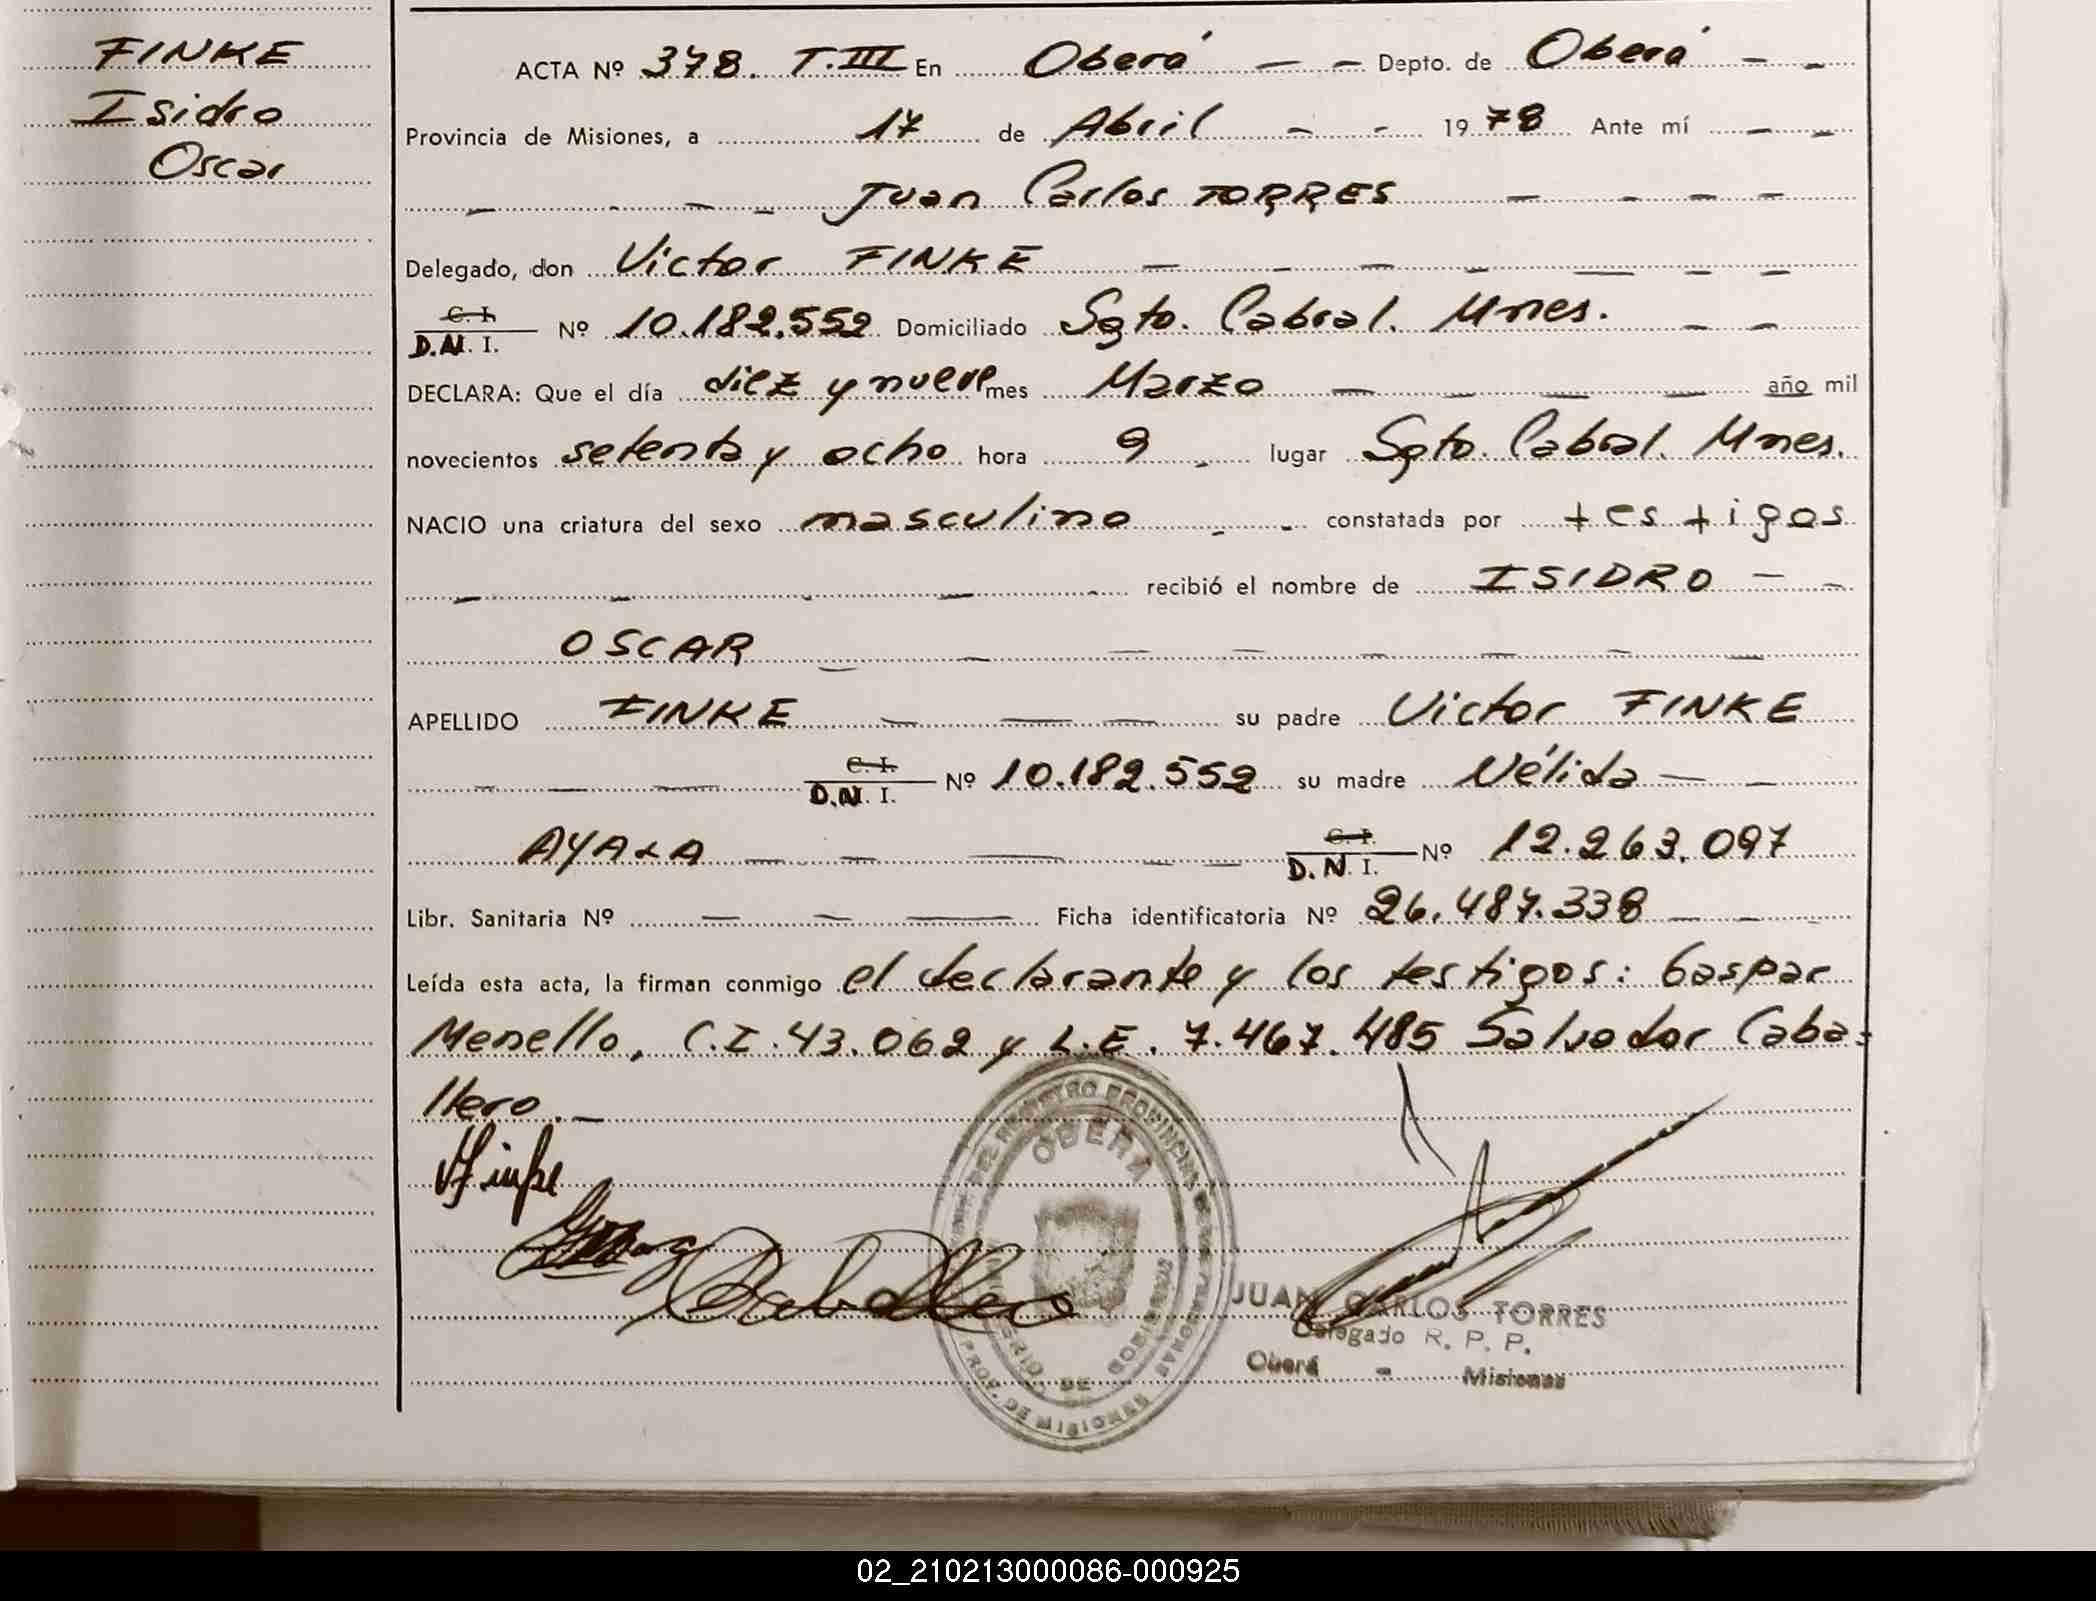 FINKE
Isidro
Oscar
ACTA Nº 378. T.III En Oberá — — Depto. de Oberá — —
Provincia de Misiones, a 17 de Abril - - 1978 Ante mí — —
— - — — Juan Carlos TORRES — - — —
Delegado, don Victor FINKE — - — - — — —
C. I.
D.N. I. Nº 10.182.552 Domiciliado Sgto. Cabral. Mnes. — —
DECLARA: Que el día diez y nueve mes Marzo — — — — año mil
novecientos setenta y ocho hora 9 - lugar Sgto. Cabral. Mnes.
NACIO una criatura del sexo masculino - - constatada por testigos
— — - — - recibió el nombre de ISIDRO — -
OSCAR — — — — — — — —
APELLIDO FINKE — — — su padre Victor FINKE
— — — C. I.
D.N. I. Nº 10.182.552 su madre Nélida — —
AYALA — — — — — C. I.
D. N. I. Nº 12.263.097
Libr. Sanitaria Nº — — — Ficha identificatoria Nº 26.487.338 — - -
Leída esta acta, la firman conmigo el declarante y los testigos: Gaspar
Menello, C.I. 43.062 y L.E. 7.467.485 Salvador Caba=
llero. —
VFinke
Caballero
OBERÁ
PROV. DE MISIONES
JUAN CARLOS TORRES
Delegado R. P. P.
Oberá - Misiones
02_210213000086-000925